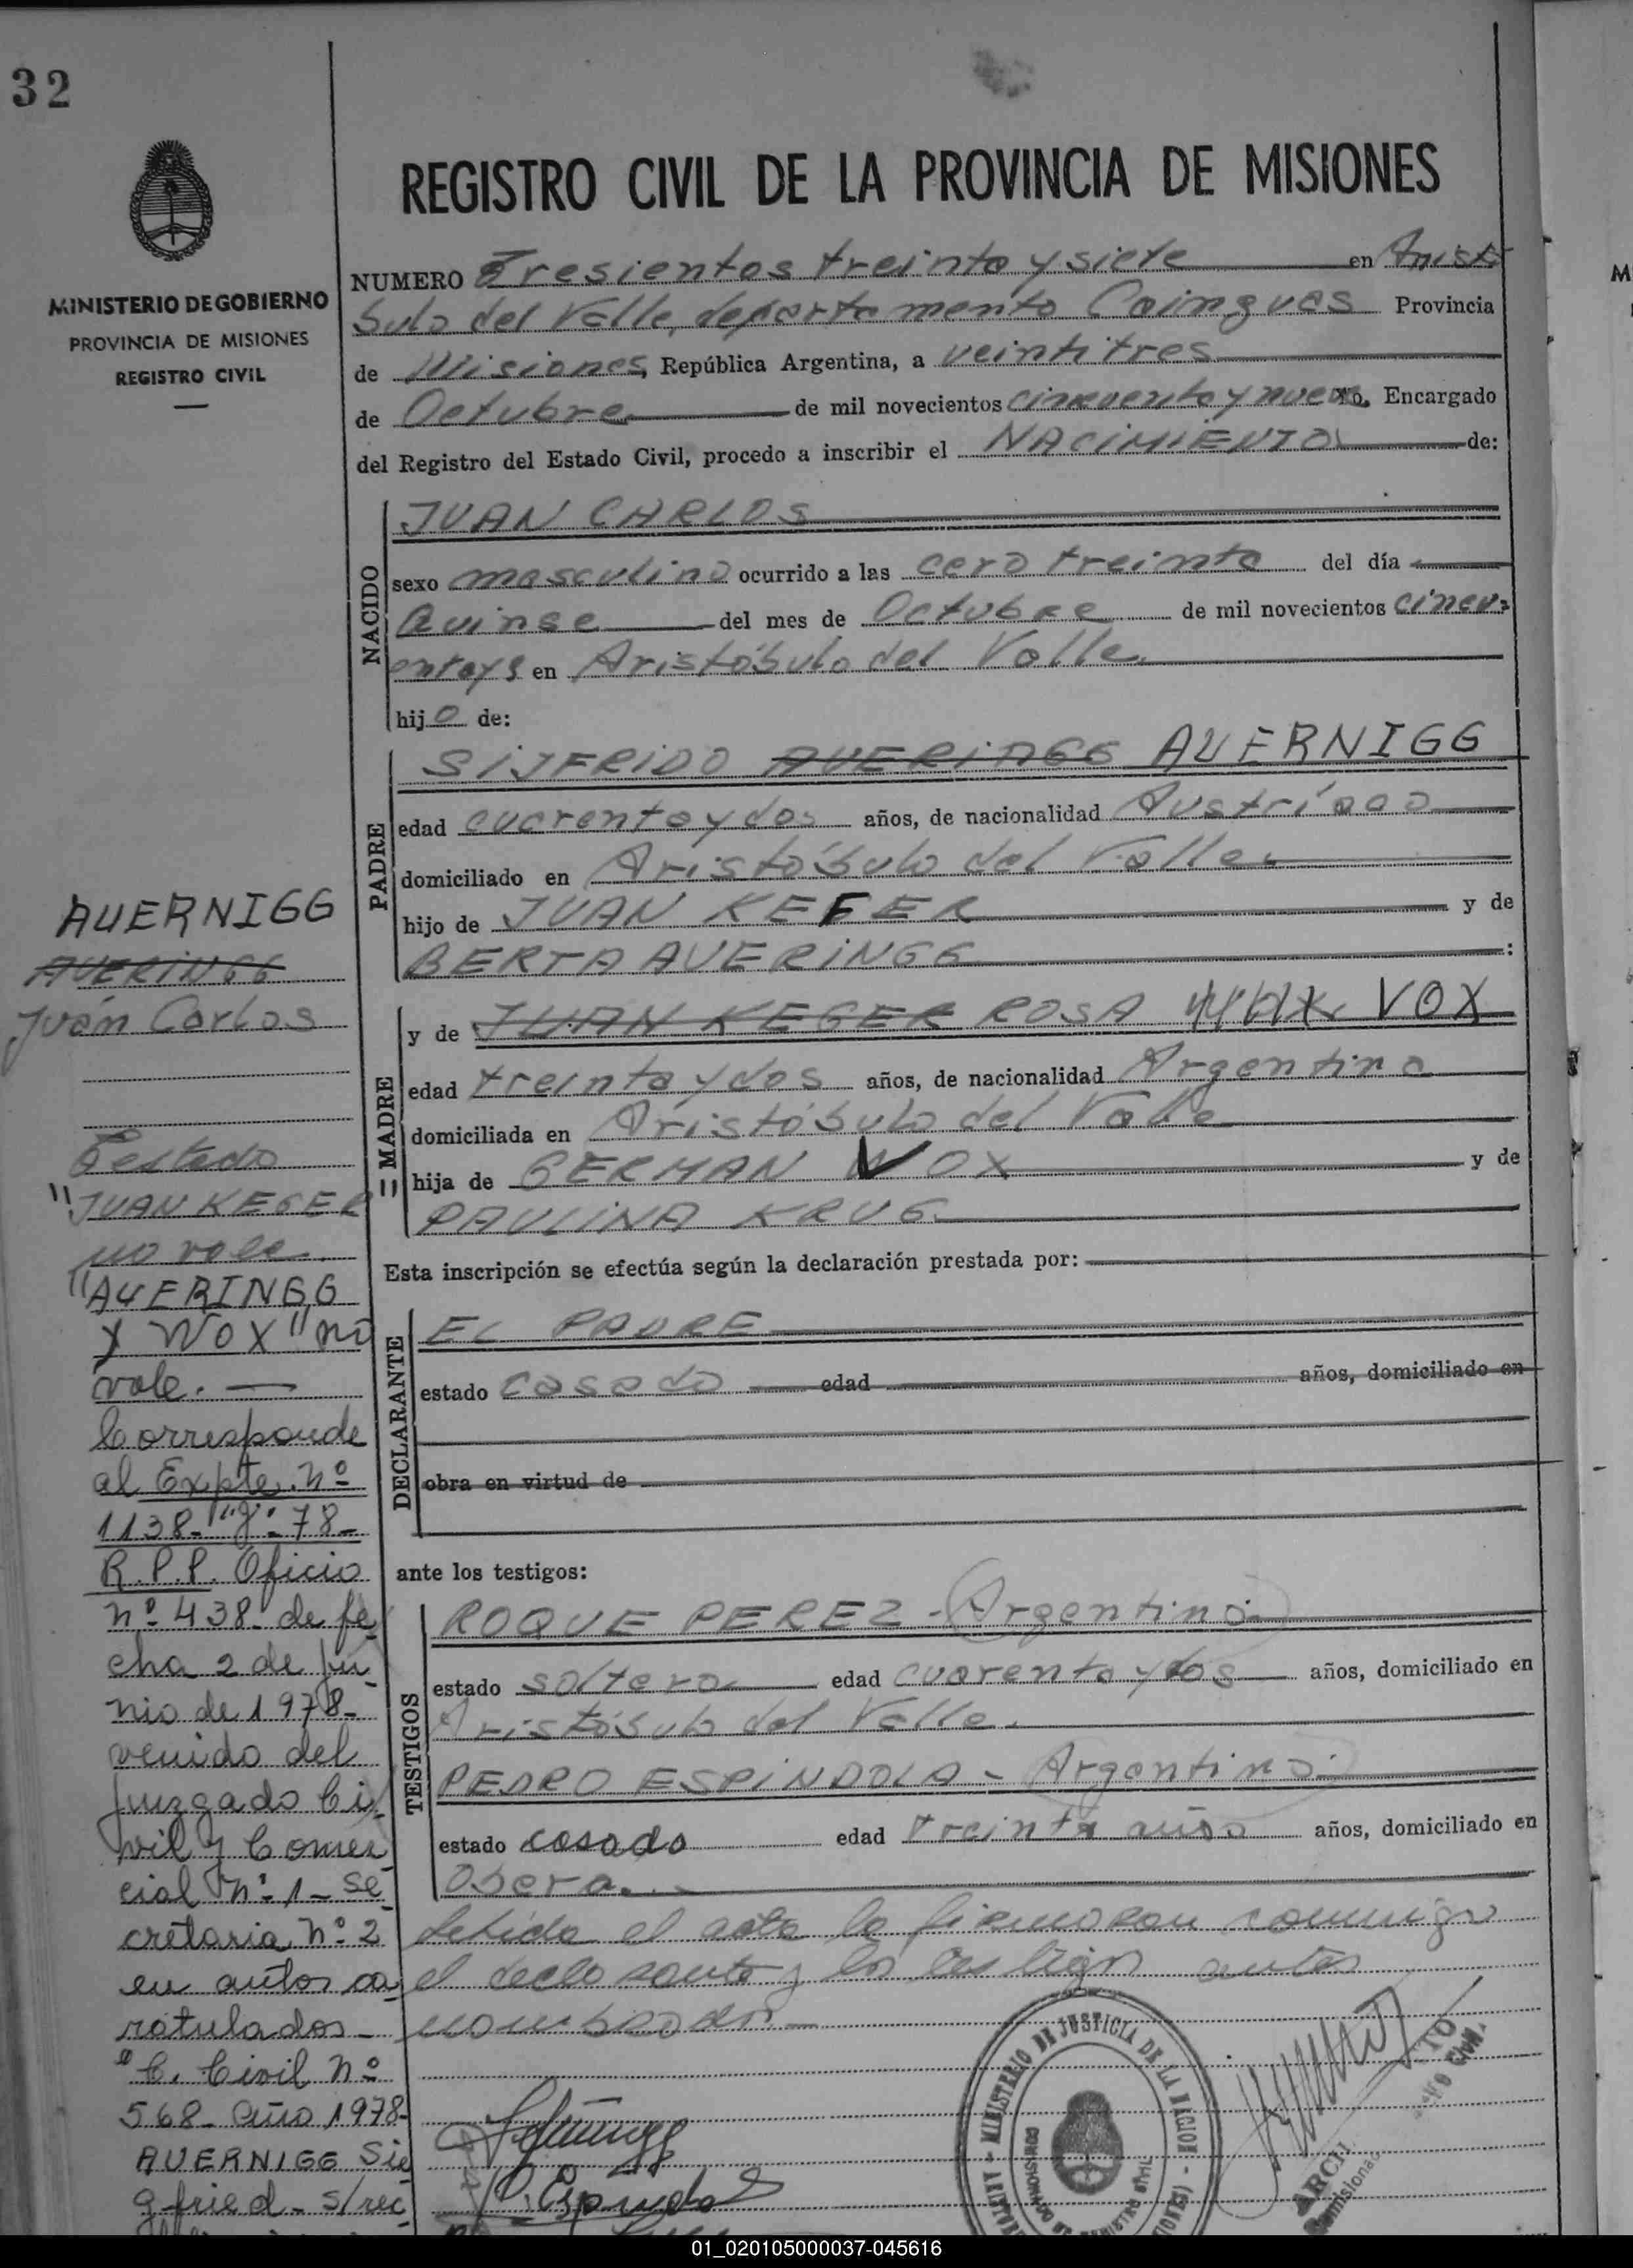 32
MINISTERIO DE GOBIERNO
PROVINCIA DE MISIONES
REGISTRO CIVIL
REGISTRO CIVIL DE LA PROVINCIA DE MISIONES
NUMERO Tresientos treinta y siete en Aristó
bulo del Valle, departamento Cainguas Provincia
de Misiones, República Argentina, a veintitres
de Octubre de mil novecientos cincuenta y nueve Yo, Encargado
del Registro del Estado Civil, procedo a inscribir el NACIMIENTO de:
NACIDO
JUAN CARLOS
sexo masculino ocurrido a las cero treinta del día
Quinse del mes de Octubre de mil novecientos cincu=
entay9 en Aristóbulo del Valle.
hijo de:
PADRE
SIJFRIDO AUERINGG AUERNIGG
edad cuarenta y dos años, de nacionalidad Austríaco
domiciliado en Aristóbulo del Valle
hijo de JUAN KEFER y de
BERTA AUERINGG :
MADRE
y de JUAN KEGER ROSA VOX
edad treinta y dos años, de nacionalidad Argentina
domiciliada en Aristóbulo del Valle
hija de GERMAN VOX y de
PAULINA KRUG
Esta inscripción se efectúa según la declaración prestada por:
DECLARANTE
EL PADRE
estado Casado edad años, domiciliado en
obra en virtud de
ante los testigos:
TESTIGOS
ROQUE PEREZ - Argentino
estado soltero edad cuarenta y dos años, domiciliado en
Aristóbulo del Valle.
PEDRO ESPINDOLA - Argentino
estado casado edad treinta años, domiciliado en
Obera.
el acta la firmaron conmigo
el declarante y los testigos antes
nombrados
AUERNIGG
AUERINGG
Juan Carlos
Testado
"JUAN KEGER"
no vale
"AUERINGG
y WOX" no
vale.
Corresponde
al Expte. Nº
1138-"J"-78-
R.P.P. Oficio
nº 438- de fe
cha 2 de ju
nio de 1978-
venido del
Juzgado Ci
vil y Comer
cial Nº 1- Se
cretaria Nº 2
en autos ca
ratulados-
"C. Civil Nº
568- año 1978-
AUERNIGG Sie
gfried- s/rec
MINISTERIO DE JUSTICIA DE LA NACION
01_020105000037-045616